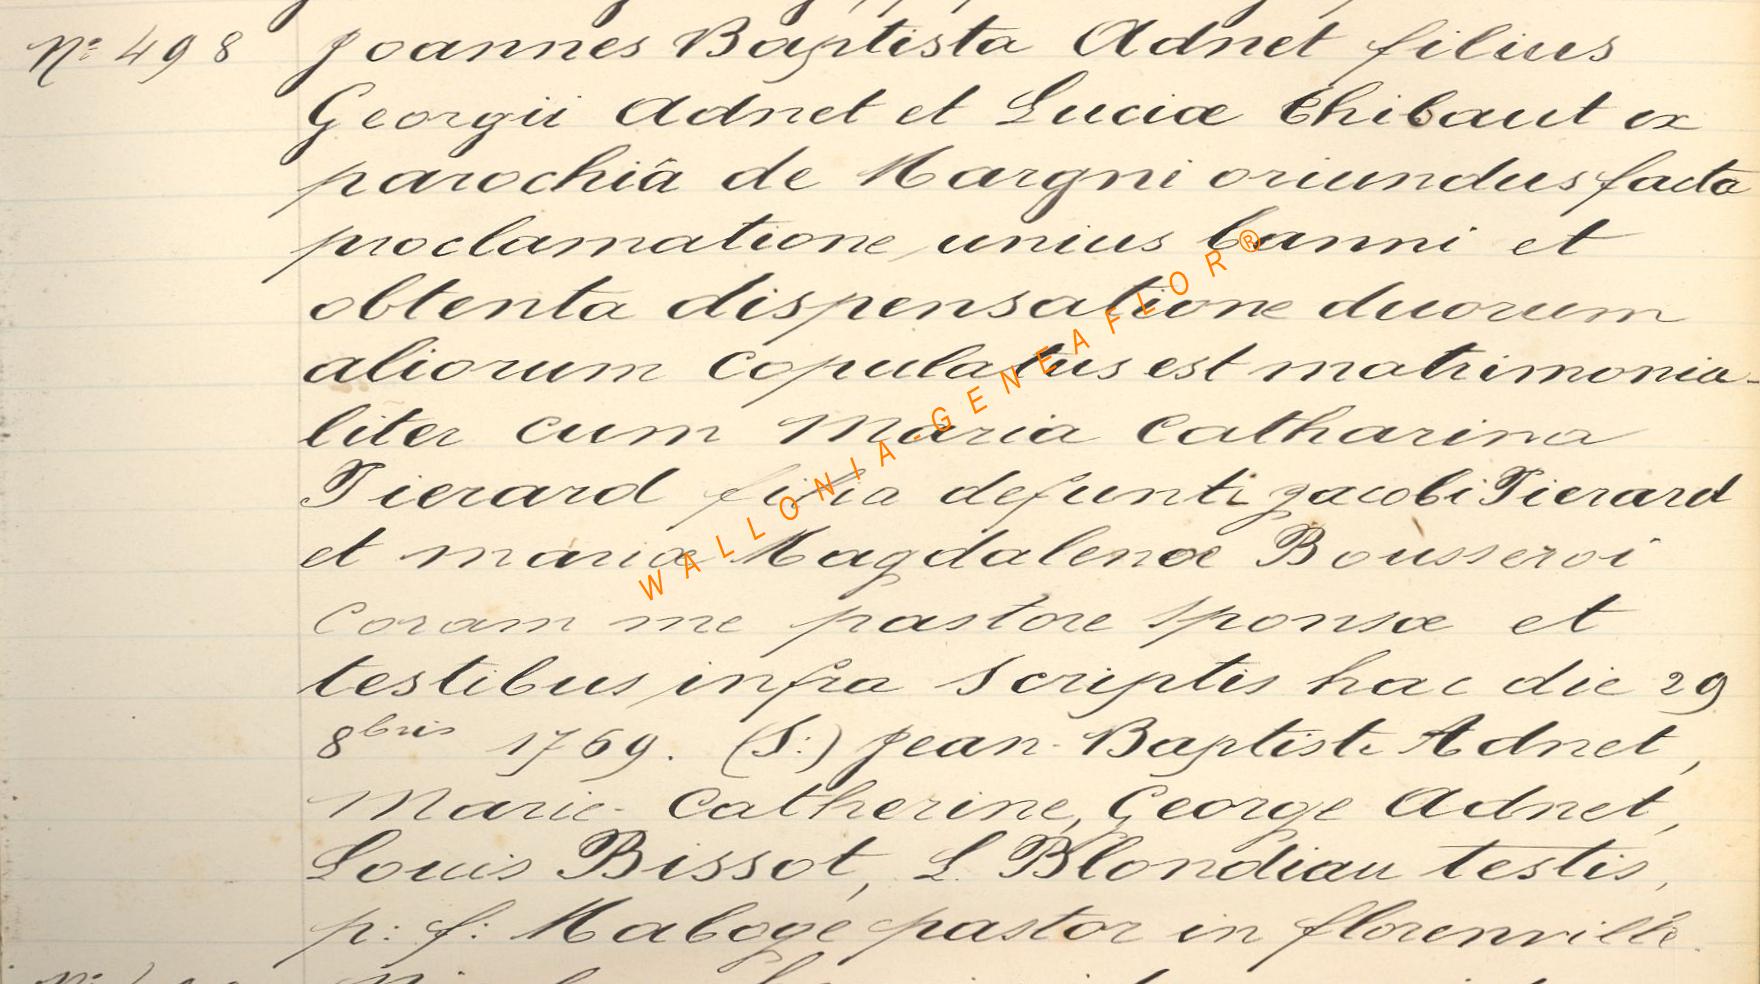 N° 498 Joannes Baptista Adnet filius
Georgii Adnet et Luciæ Thibaut ex
parochiâ de Margni oriundus facta
proclamatione unius banni et
obtenta dispensatione duorum
aliorum copulatus est matrimonia-
liter cum Maria Catharina
Tierard filia defunti Jacobi Tierard
et mariæ Magdalenæ Bousseroi
coram me pastore sponsæ et
testibus infra scriptis hac die 29
8bris 1769. (S:) Jean-Baptiste Adnet,
Marie-Catherine, George Adnet,
Louis Bissot, L. Blondiau testis,
p: f: Maboge pastor in florenville.
WALLONIA-GENEAFLOR®